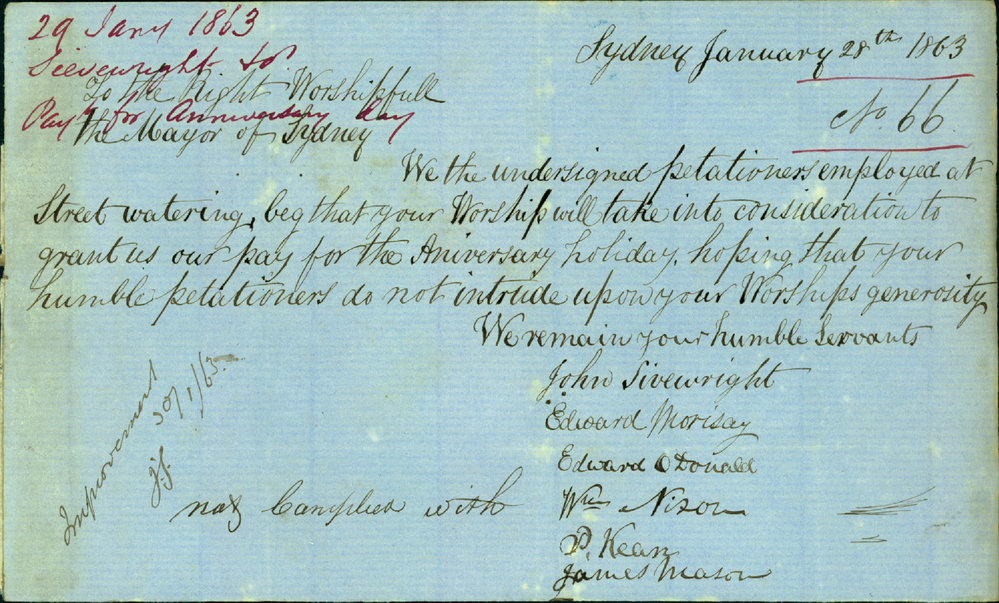 29 Jany 1863
Sievewright &
Pay for Anniversary Day
Sydney January 28th 1863
No. 66
To the Right Worshipfull
The Mayor of Sydney
We the undersigned petationers employed at
Street watering, beg that your Worship will take into consideration to
grant us our pay for the Aniversary holiday, hoping that your
humble petationers do not intrude upon your Worships generosity
We remain your humble Servants
John Sivewright
Edward Morisay
Edward O Donald
Wm Nixon
P. Kean
James Mason
not Complied with
Improvement
30/1/63